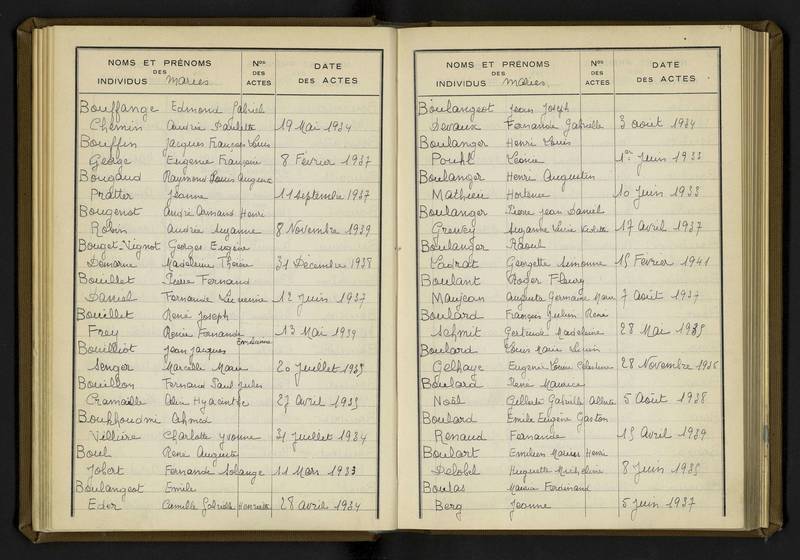 NOMS ET PRÉNOMS
DES
INDIVIDUS Mariés
Nos
DES
ACTES
DATE
DES ACTES
Bouffange Edmond Gabriel
Chemin Andrée Paulette 19 Mai 1934
Bouffin Jacques François Louis
George Eugenie Françoise 8 Février 1937
Bougaud Raymond Louis Auguste
Pratter Jeanne 11 septembre 1937
Bougenot André Armand Henri
Robin Andrée Suzanne 8 Novembre 1939
Bouget-Vignot Georges Eugène
Demorne Madeleine Thérèse 31 Décembre 1938
Bouillet Pierre Fernand
Daniel Fernande Lucienne 12 Juin 1937
Bouillet René Joseph
Frey Renée Fernande 13 Mai 1939
Bouilliot Jean Jacques
Senger Marcelle Marie Emilienne 20 Juillet 1935
Bouillon Fernand Paul Jules
Cramaille Alice Hyacinthe 27 avril 1935
Boukhoudmi Ahmed
Villière Charlotte Yvonne 31 Juillet 1934
Boul René Auguste
Jobert Fernande Solange 11 Mars 1933
Boulangeot Emile
Eder Camille Gabrielle Henriette 28 avril 1934
NOMS ET PRÉNOMS
DES
INDIVIDUS Mariés
Nos
DES
ACTES
DATE
DES ACTES
Boulangeot Jean Joseph
Devaux Fernande Gabrielle 3 août 1934
Boulanger Henri Louis
Léonie 1er Juin 1933
Boulanger Henri Augustin
Mathieu Hortense 10 Juin 1933
Boulanger Pierre Jean Daniel
Suzanne Lucie 17 avril 1937
Boulanger Raoul
Ladrat Georgette Simonne 15 Février 1941
Boulant Roger Fleury
Maujean Augusta Germaine Marie 7 Août 1937
Boulard François Julien René
Schmit Gertrude Madeleine 28 Mai 1935
Boulard Louis Marie
Gelhaye Eugénie Louise Célestine 28 Novembre 1936
Boulard René Maurice
Noël Gabrielle 5 Août 1938
Boulard Emile Eugène Gaston
Renaud Fernande 15 Avril 1939
Boulart Emilien Marius Henri
Delobel Huguette Micheline 8 Juin 1935
Boulas Ferdinand
Berg Jeanne 5 Juin 1937